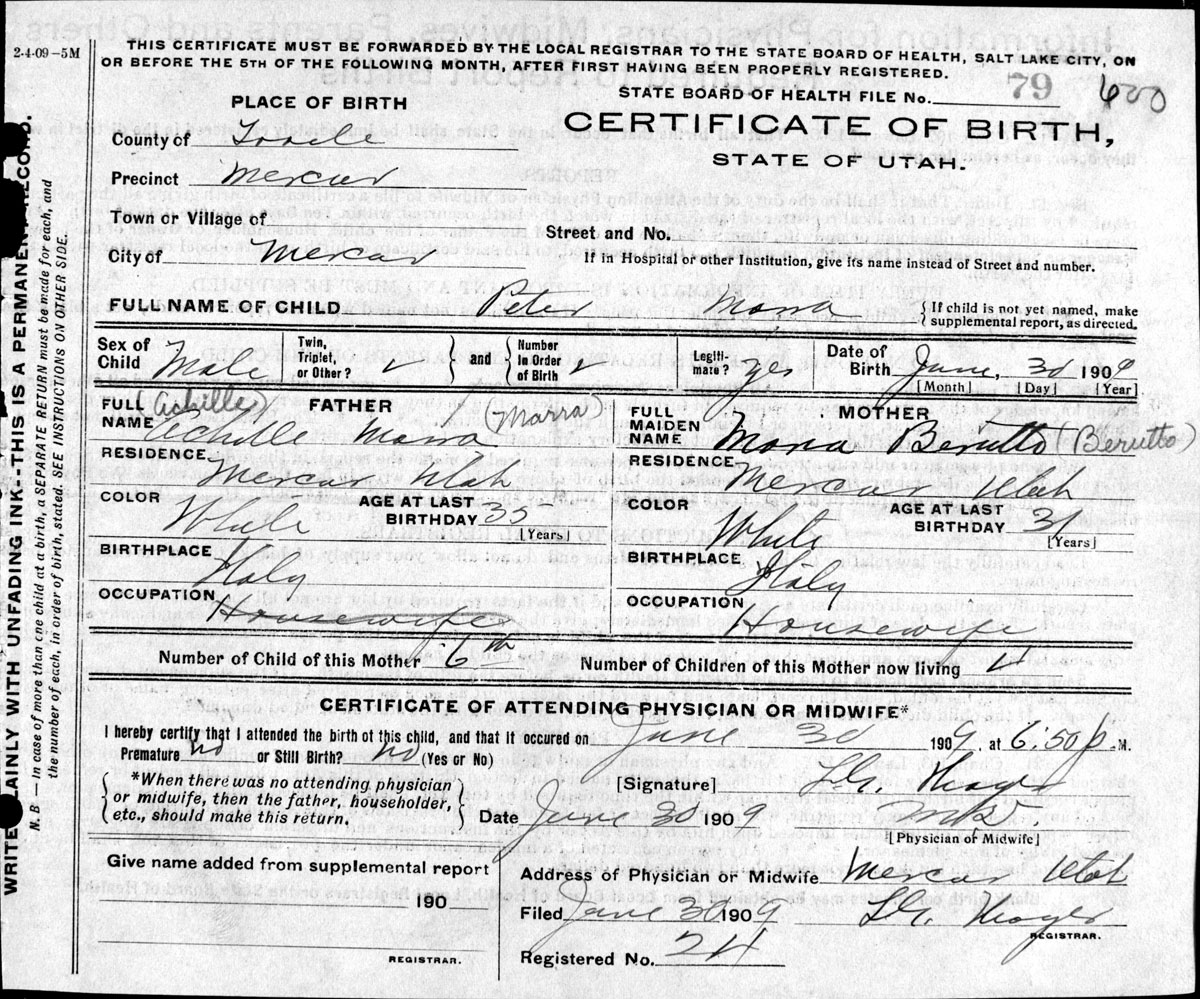 2-4-09-5M
THIS CERTIFICATE MUST BE FORWARDED BY THE LOCAL REGISTRAR TO THE STATE BOARD OF HEALTH, SALT LAKE CITY, ON
OR BEFORE THE 5TH OF THE FOLLOWING MONTH, AFTER FIRST HAVING BEEN PROPERLY REGISTERED.
STATE BOARD OF HEALTH FILE No. 79 600
PLACE OF BIRTH
CERTIFICATE OF BIRTH,
STATE OF UTAH.
County of Tooele
Precinct Mercur
Town or Village of
Street and No.
City of Mercur
If in Hospital or other Institution, give its name instead of Street and number.
FULL NAME OF CHILD Peter Marra { If child is not yet named, make supplemental report, as directed.
Sex of Child Male Twin, Triplet, or Other? ✓ } and { Number in Order of Birth ✓ Legiti-mate? yes Date of Birth June, 30 1909
[Month] [Day] [Year]
FULL NAME (Achille) FATHER Achille Marra (Marra)
FULL MAIDEN NAME MOTHER Maria Berutto (Berutto)
RESIDENCE Mercur Utah
RESIDENCE Mercur Utah
COLOR White AGE AT LAST BIRTHDAY 35 [Years]
COLOR White AGE AT LAST BIRTHDAY 31 [Years]
BIRTHPLACE Italy
BIRTHPLACE Italy
OCCUPATION Housewife
OCCUPATION Housewife
Number of Child of this Mother 6th Number of Children of this Mother now living 4
CERTIFICATE OF ATTENDING PHYSICIAN OR MIDWIFE*
I hereby certify that I attended the birth of this child, and that it occured on June 30 1909, at 6:50 p. M.
Premature no or Still Birth? no (Yes or No)
{ *When there was no attending physician or midwife, then the father, householder, etc., should make this return. }
[Signature]
Date June 30 1909
[Physician of Midwife]
Give name added from supplemental report
Address of Physician or Midwife Merc Utah
190
Filed June 30 1909
REGISTRAR.
REGISTRAR.
Registered No. 24
WRITE PLAINLY WITH UNFADING INK--THIS IS A PERMANENT RECORD.
N. B - In case of more than one child at a birth, a SEPARATE RETURN must be made for each, and
the number of each, in order of birth, stated. SEE INSTRUCTIONS ON OTHER SIDE.